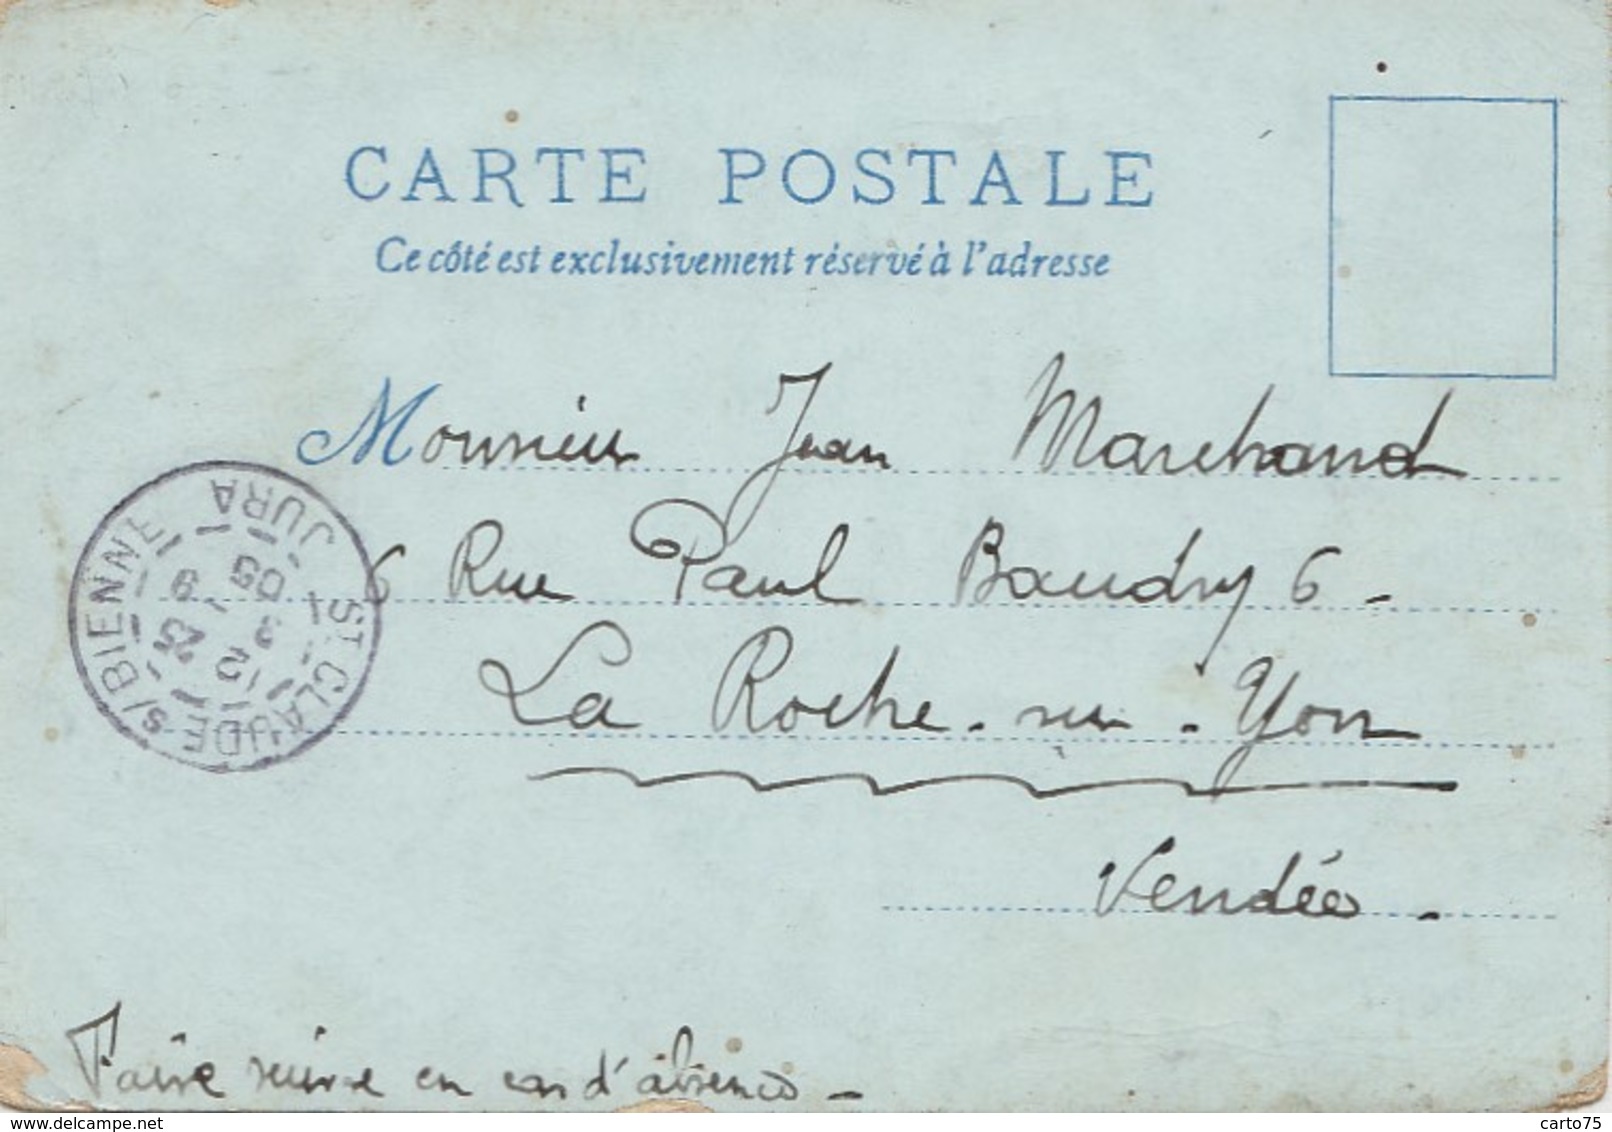 CARTE POSTALE
Ce côté est exclusivement réservé à l'adresse
Monsieur Jean Marchand
6 Rue Paul Baudry 6 -
La Roche-sur-Yon
Vendée -
ST CLAUDE S/ BIENNE JURA
Faire suivre en cas d'absence -
www.delcampe.net
carto75